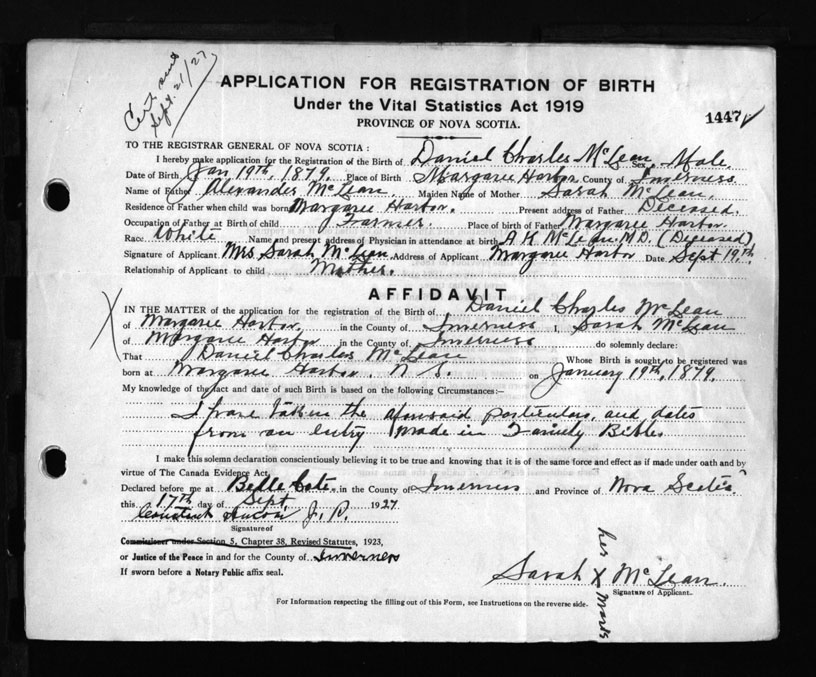 Cert sent
Sept. 21/27
APPLICATION FOR REGISTRATION OF BIRTH
Under the Vital Statistics Act 1919
PROVINCE OF NOVA SCOTIA.
1447
TO THE REGISTRAR GENERAL OF NOVA SCOTIA :
I hereby make application for the Registration of the Birth of Daniel Charles McLean Sex Male
Date of Birth Jan 19th, 1879. Place of Birth Margaree Harbor County of Inverness
Name of Father Alexander McLean. Maiden Name of Mother Sarah McLean.
Residence of Father when child was born Margaree Harbor. Present address of Father Deceased.
Occupation of Father at Birth of child Farmer. Place of birth of Father Margaree Harbor
Race White Name and present address of Physician in attendance at birth A K McLean M.D. (Deceased)
Signature of Applicant Mrs Sarah McLean Address of Applicant Margaree Harbor Date Sept 19th
Relationship of Applicant to child Mother.
AFFIDAVIT
IN THE MATTER of the application for the registration of the Birth of Daniel Charles McLean
of Margaree Harbor in the County of Inverness I, Sarah McLean
of Margaree Harbor in the County of Inverness do solemnly declare:
That Daniel Charles McLean Whose Birth is sought to be registered was
born at Margaree Harbor. N S. on January 19th, 1879.
My knowledge of the fact and date of such Birth is based on the following Circumstances:—
I have taken the aforesaid particulars, and dates
from an entry made in Family Bible
I make this solemn declaration conscientiously believing it to be true and knowing that it is of the same force and effect as if made under oath and by
virtue of The Canada Evidence Act.
Declared before me at Belle Cote in the County of Inverness and Province of Nova Scotia
this 17th day of Sept. 1927
J. P.
Signature of
Commissioner under Section 5, Chapter 38, Revised Statutes, 1923,
or Justice of the Peace in and for the County of Inverness
If sworn before a Notary Public affix seal.
her
Sarah X McLean.
mark
Signature of Applicant.
For Information respecting the filling out of this Form, see Instructions on the reverse side.